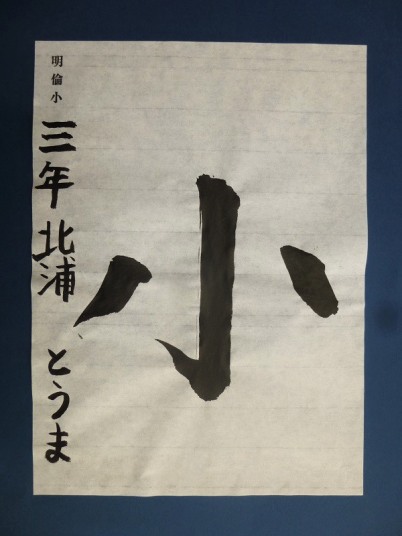 小
明倫小
三年 北浦 とうま